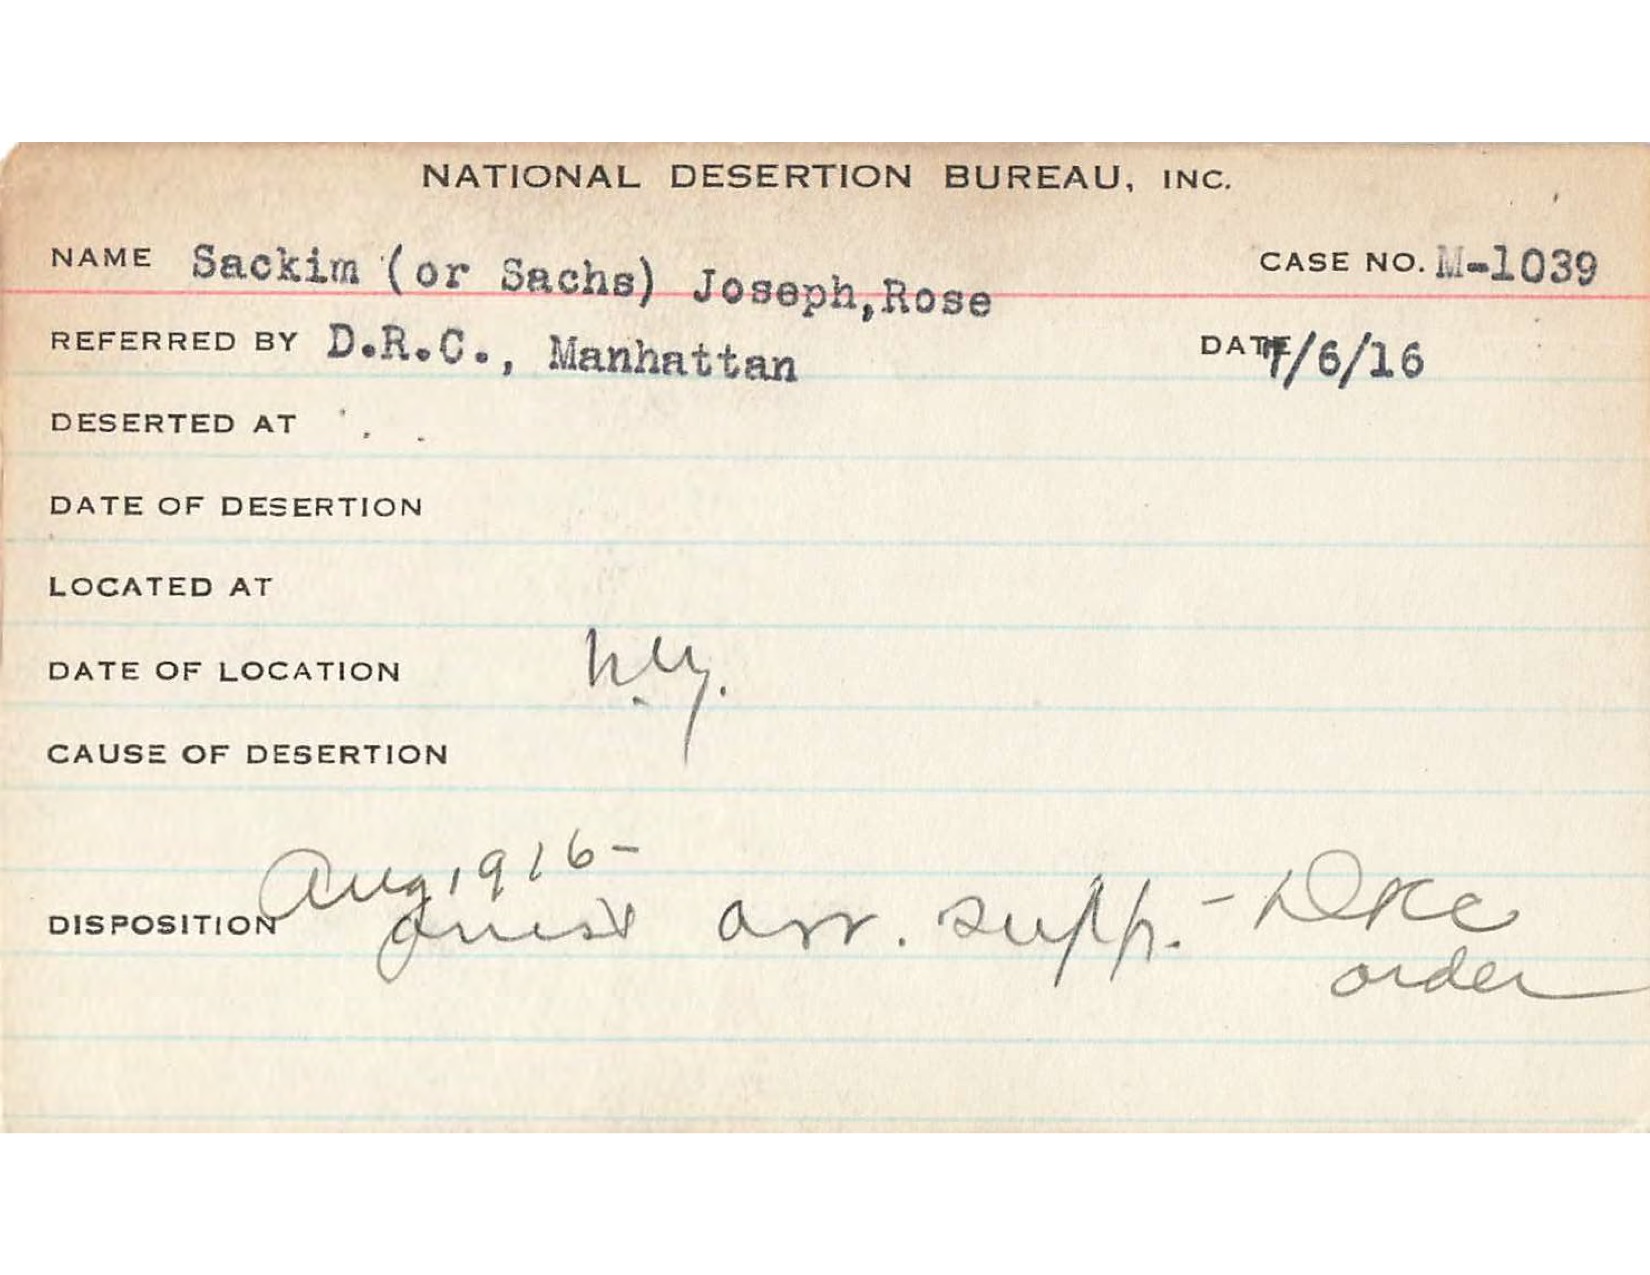 NATIONAL DESERTION BUREAU, INC.
NAME Sackim (or Sachs) Joseph,Rose CASE NO. M-1039
REFERRED BY D.R.C., Manhattan DATE 7/6/16
DESERTED AT
DATE OF DESERTION
LOCATED AT
DATE OF LOCATION N.Y.
CAUSE OF DESERTION
Aug 1916-
DISPOSITION arr. supp. -
order